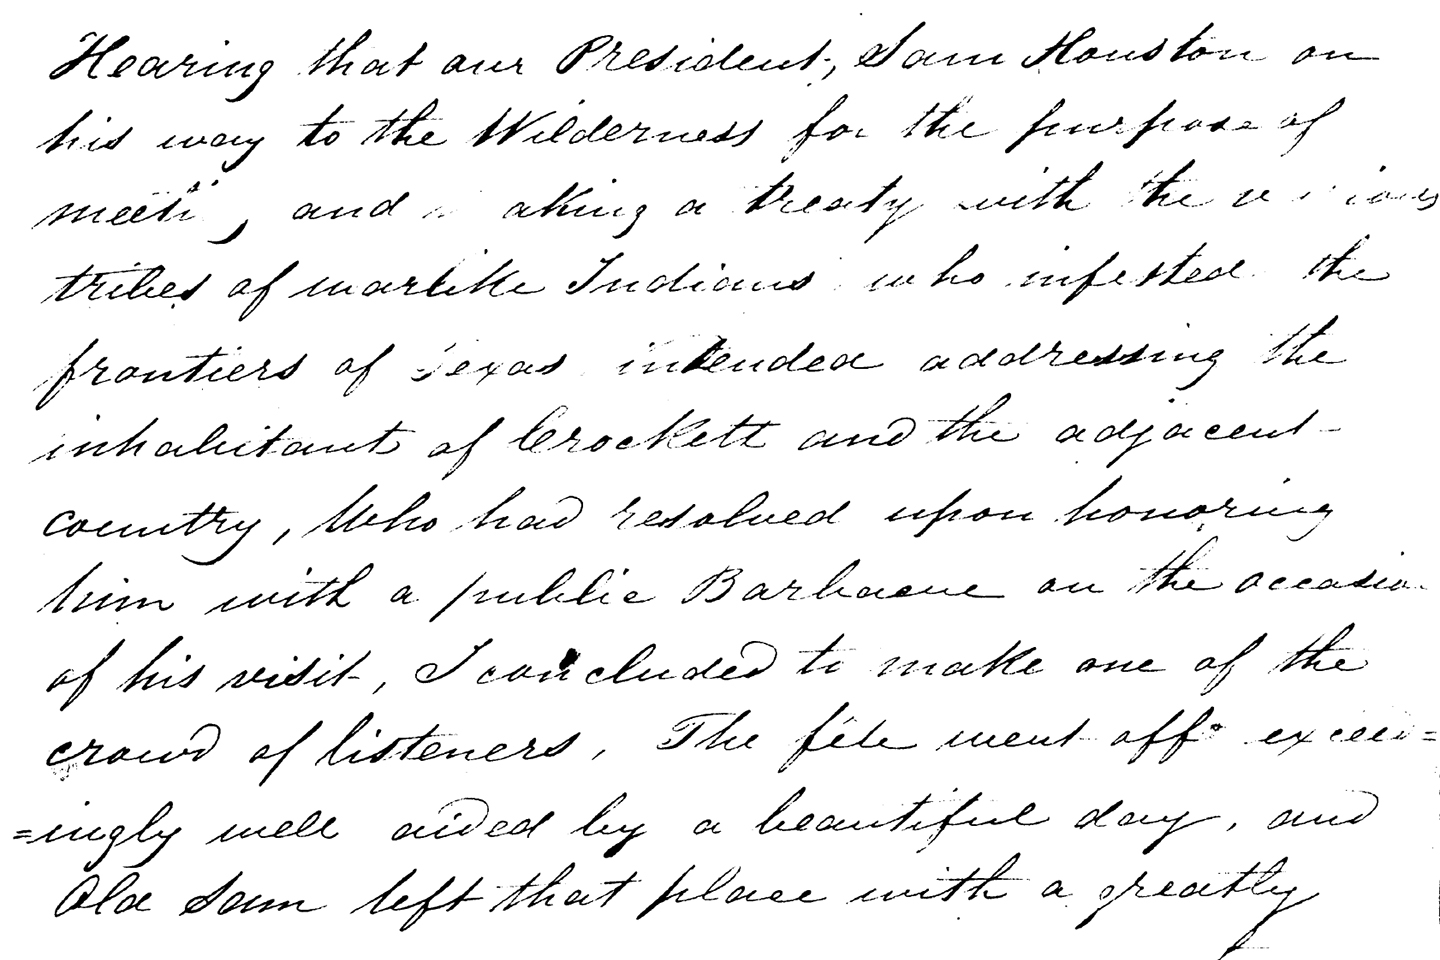 Hearing that our President, Sam Houston on
his way to the Wilderness for the purpose of
meeti, and making a treaty with the various
tribes of warlike Indians who infested the
frontiers of Texas intended addressing the
inhabitant of Crockett and the adjacent
country, Who had resolved upon honoring
him with a public Barbacue on the occasion
of his visit, I concluded to make one of the
crowd of listeners, The fête went off exceed=
=ingly well aided by a beautiful day, and
Old Sam left that place with a greatly